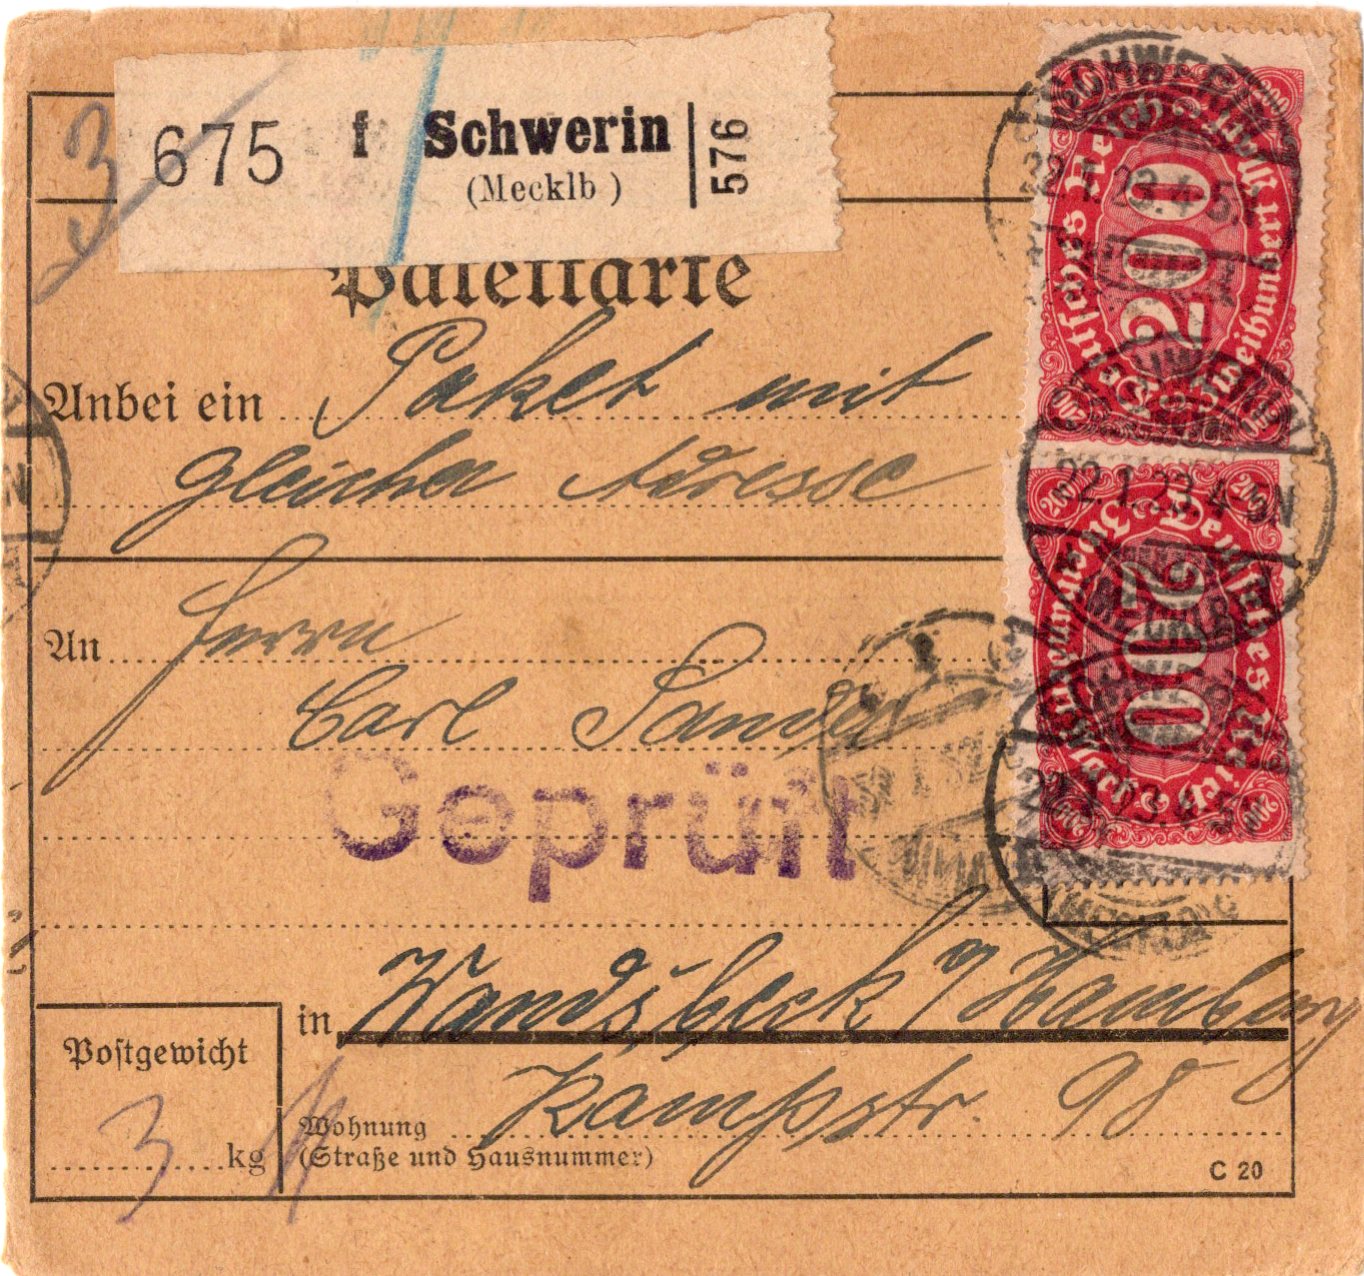 3
675 f Schwerin 576
(Mecklb )
Paketkarte
Anbei ein Paket mit
gleicher Adresse
An Herrn
Carl Sander
Geprüft
in Wandsbeck / Hamburg
Postgewicht
3 kg
Kampstr. 98
Wohnung
(Straße und Hausnummer)
C 20
Deutsches Reich
200
Zweihundert Mark
SCHWERIN
22.1.23.4-5N
Deutsches Reich
200
22.1.23.4-5N
(MECKLB)
22.1.23.4-5N
(MECKLB)